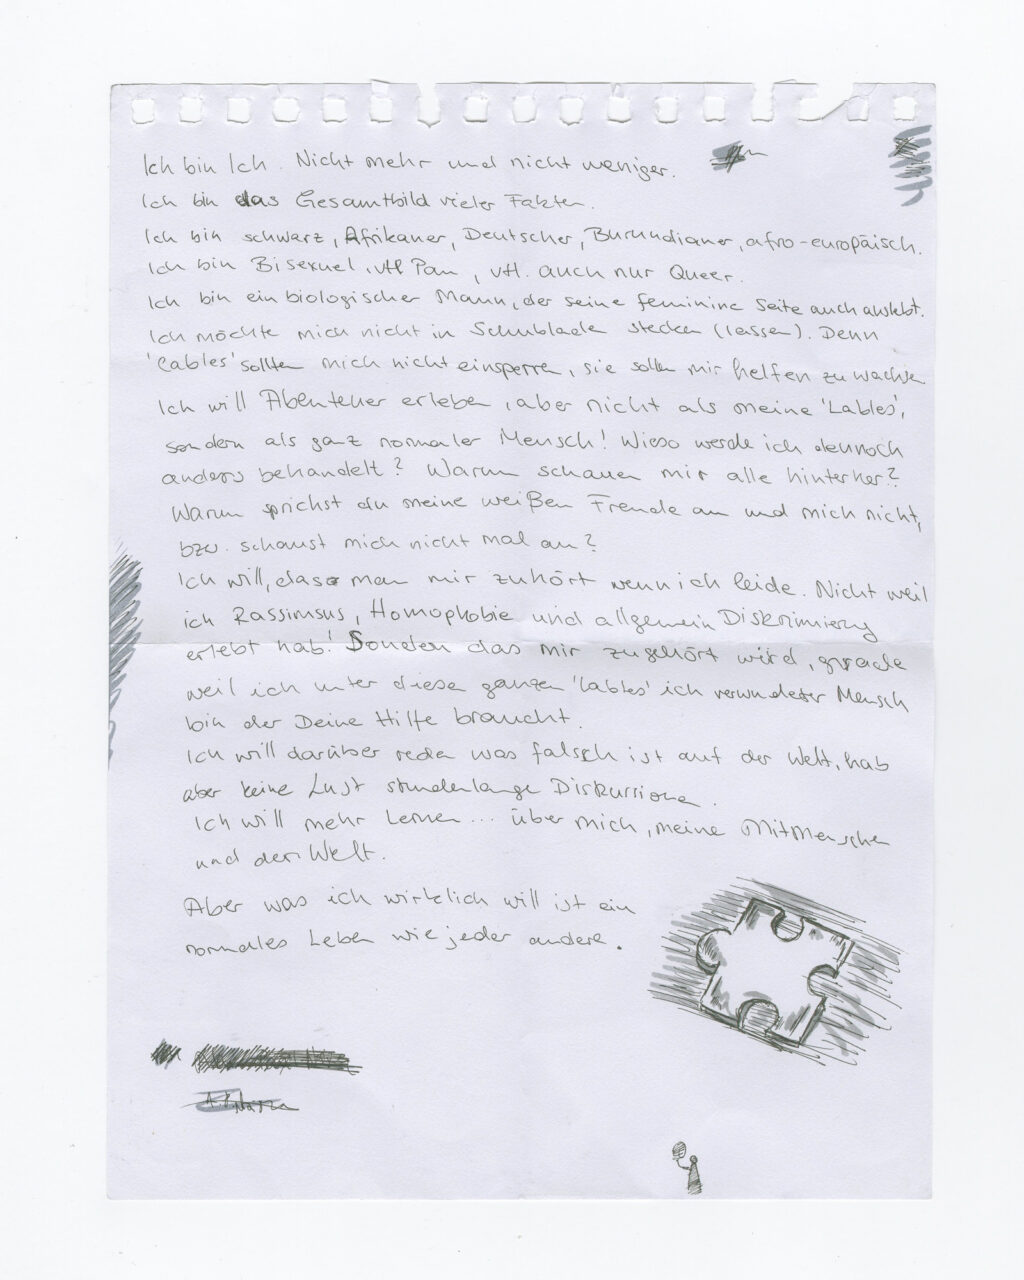 Ich bin Ich. Nicht mehr und nicht weniger.
Ich bin das Gesamtbild vieler Fakten.
Ich bin schwarz, Afrikaner, Deutscher, Burundianer, afro-europäisch.
Ich bin Bisexuel, vtl Pan, vtl. auch nur Queer.
Ich bin ein biologischer Mann, der seine feminine Seite auch auslebt.
Ich möchte mich nicht in Schublade stecken (lassen). Denn
'Lables' sollten mich nicht einsperren, sie sollen mir helfen zu wachsen
Ich will Abenteuer erleben, aber nicht als meine 'Lables',
sondern als ganz normaler Mensch! Wieso werde ich dennoch
anders behandelt? Warum schauen mir alle hinterher?
Warum sprichst du meine weißen Freunde an und mich nicht,
bzw. schaust mich nicht mal an?
Ich will, dass man mir zuhört wenn ich leide. Nicht weil
ich Rassimsus, Homophobie und allgemein Diskriminierung
erlebt hab! Sondern das mir zugehört wird, gerade
weil ich unter diesen ganzen 'Lables' ich verwundeter Mensch
bin der Deine Hilfe braucht.
Ich will darüber reden was falsch ist auf der Welt, hab
aber keine Lust stundenlange Diskussionen.
Ich will mehr lernen... über mich, meine Mitmenschen
und der Welt.
Aber was ich wirklich will ist ein
normales Leben wie jeder andere.